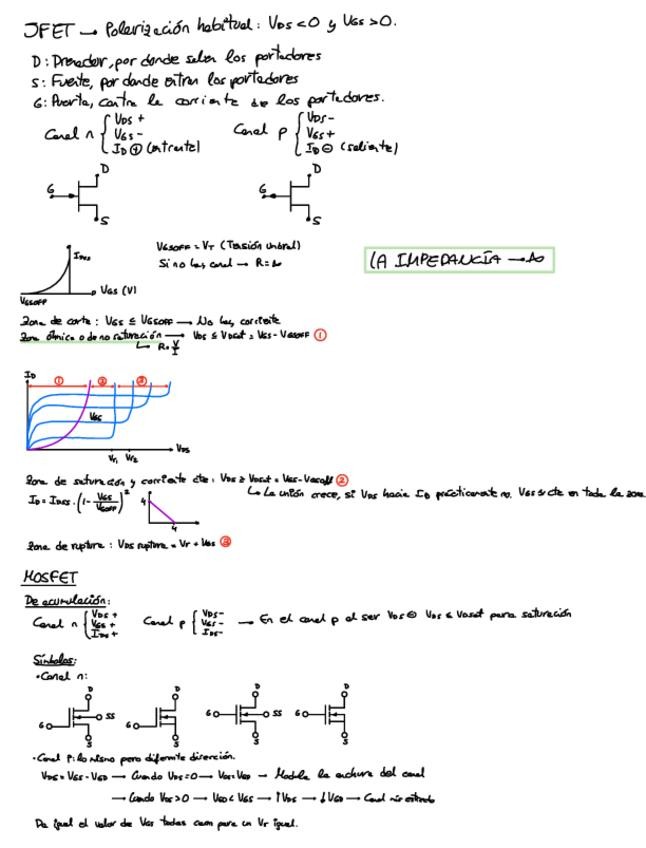 JFET → Polarización habitual: VDS<0 y VGS>0.
D: Drenador, por donde salen los portadores
S: Fuente, por donde entran los portadores
G: Puerta, contra la corriente de los portadores.
Canal n { VDS + VGS - ID ⊕ (entrante)
Canal p { VDS - VGS + ID ⊖ (saliente)
D
G
S
D
G
S
IDSS
VGS (V)
VGSOFF
VGSOFF = VT (Tensión umbral)
Si no hay canal → R=∞
LA IMPEDANCIA → ∞
Zona de corte: VGS ≤ VGSOFF → No hay corriente
Zona óhmica o de no saturación → VDS ≤ VDSAT = VGS - VGSOFF ①
↳ R=V/I
ID
① ② ③
VGS
VDS
Vr1 Vr2
Zona de saturación y corriente cte: VDS ≥ VDSAT = VGS - VGSOFF ②
↳ La unión crece, si VDS hacia ID prácticamente no. VGS cte en toda la zona
ID = IDSS · (1 - VGS/VGSOFF)²
4
4
Zona de ruptura: VDS ruptura = Vr + VGS ③
MOSFET
De acumulación:
Canal n { VDS + VGS + IDS +
Canal p { VDS - VGS - IDS - → En el canal p al ser VDS ⊖ VDS ≤ VDSAT para saturación
Símbolos:
· Canal n:
D D D D
G SS G G SS G
S S S S
· Canal P: lo mismo pero diferente dirección.
VDS = VGS - VGD → Cuando VDS=0 → VGS=VGD → Modula la anchura del canal
→ Cuando VDS>0 → VGD<VGS → ↑VDS → ↓VGD → Canal más estrecho
Da igual el valor de VGS todas para un Vr igual.